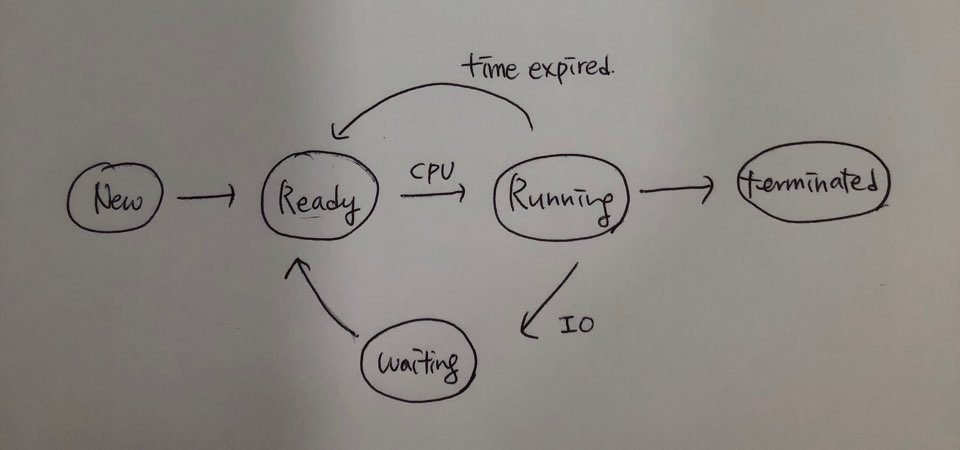 time expired.
New
Ready
CPU
Running
terminated
IO
waiting